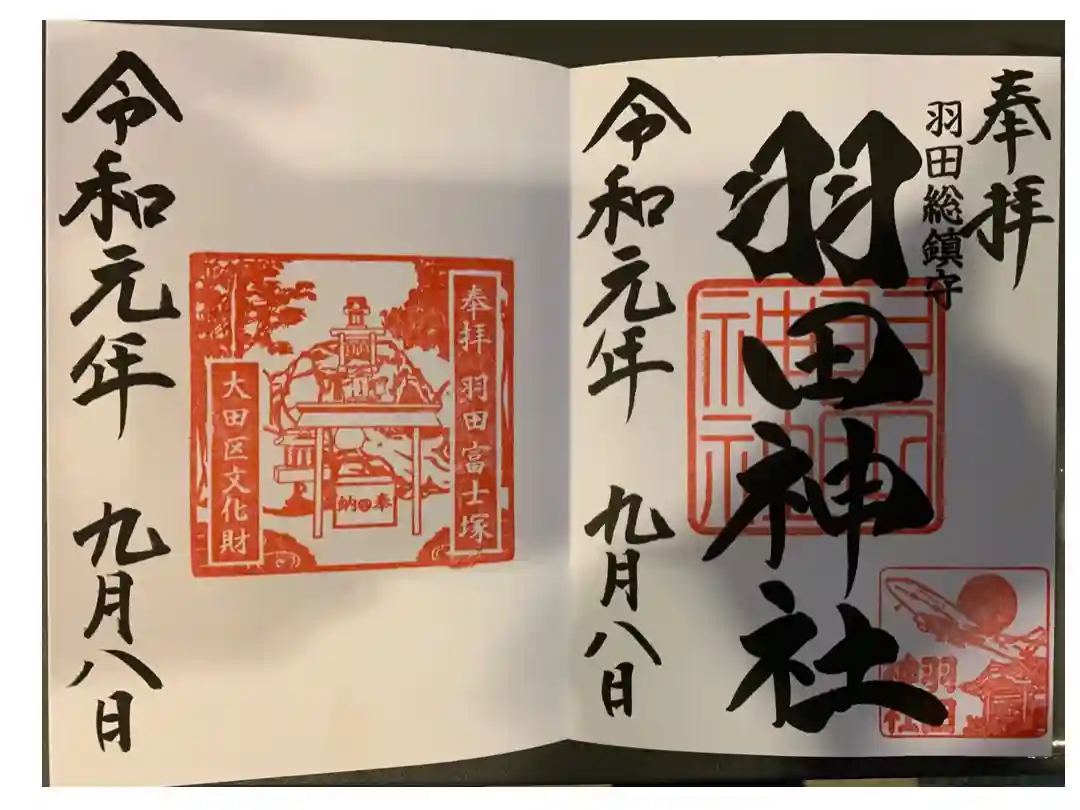 奉拝
羽田総鎮守
羽田神社
羽田神社
令和元年 九月八日
奉拝 羽田富士塚
奉納
大田区文化財
令和元年 九月八日